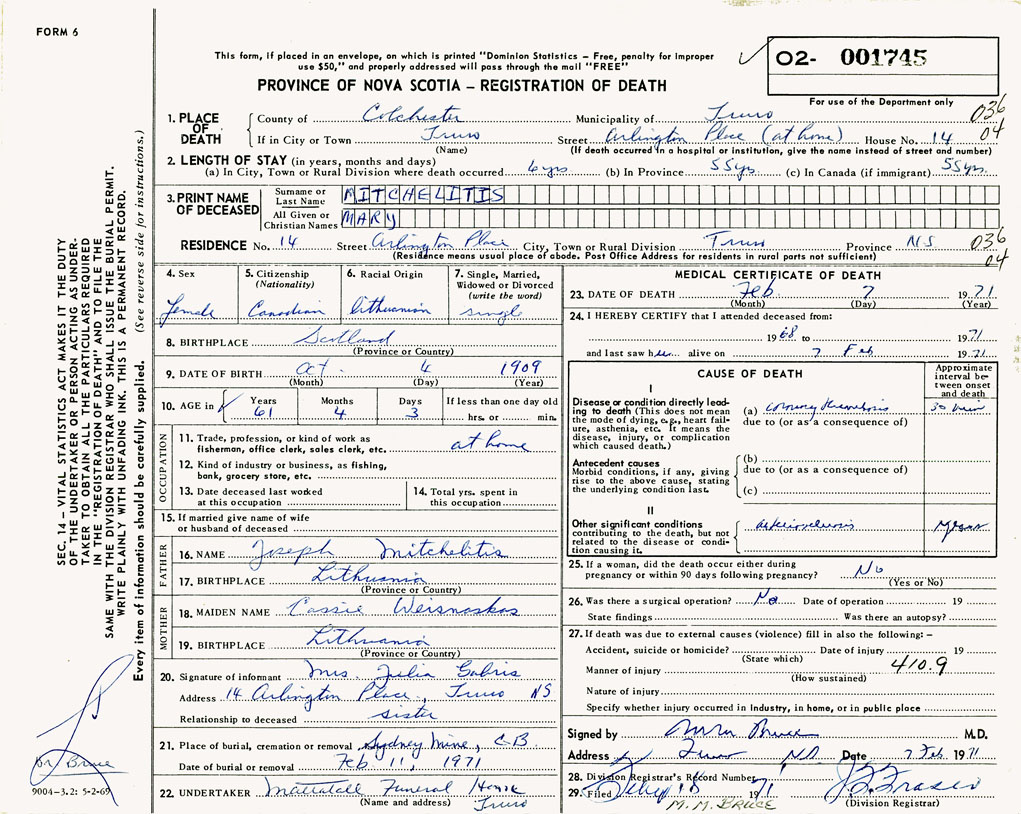 FORM 6
This form, if placed in an envelope, on which is printed "Dominion Statistics - Free, penalty for improper
use $50," and properly addressed will pass through the mail "FREE"
O2- 001745
For use of the Department only
PROVINCE OF NOVA SCOTIA – REGISTRATION OF DEATH
036
04
1. PLACE OF DEATH
County of Colchester Municipality of Truro
If in City or Town Truro Street Arlington Place (at home) House No. 14
(Name) (If death occurred in a hospital or institution, give the name instead of street and number)
2. LENGTH OF STAY (in years, months and days)
(a) In City, Town or Rural Division where death occurred 6 yrs (b) In Province 55 yrs. (c) In Canada (if immigrant) 55 yrs.
3. PRINT NAME OF DECEASED
Surname or Last Name MITCHELITIS
All Given or Christian Names MARY
RESIDENCE No. 14 Street Arlington Place City, Town or Rural Division Truro Province NS
036
04
(Residence means usual place of abode. Post Office Address for residents in rural parts not sufficient)
4. Sex
female
5. Citizenship
(Nationality)
Canadian
6. Racial Origin
lithuanian
7. Single, Married,
Widowed or Divorced
(write the word)
single
8. BIRTHPLACE Scotland
(Province or Country)
9. DATE OF BIRTH Oct. 4 1909
(Month) (Day) (Year)
10. AGE in
Years 61
Months 4
Days 3
If less than one day old
hrs. or min.
OCCUPATION
11. Trade, profession, or kind of work as
fisherman, office clerk, sales clerk, etc. at home
12. Kind of industry or business, as fishing,
bank, grocery store, etc.
13. Date deceased last worked
at this occupation
14. Total yrs. spent in
this occupation
15. If married give name of wife
or husband of deceased
FATHER
16. NAME Joseph Mitchelitis
17. BIRTHPLACE Lithuania
(Province or Country)
MOTHER
18. MAIDEN NAME Cassie Weisnaskas
19. BIRTHPLACE Lithuania
(Province or Country)
20. Signature of informant Mrs. Julia Gabris
Address 14 Arlington Place, Truro NS
Relationship to deceased sister
21. Place of burial, cremation or removal Sydney Mine, C.B.
Date of burial or removal Feb 11, 1971
22. UNDERTAKER Mattatall Funeral Home
(Name and address) Truro
MEDICAL CERTIFICATE OF DEATH
23. DATE OF DEATH Feb. 7 1971
(Month) (Day) (Year)
24. I HEREBY CERTIFY that I attended deceased from:
1968 to 1971
and last saw her alive on 7 Feb 1971
CAUSE OF DEATH
Approximate
interval be-
tween onset
and death
I
Disease or condition directly lead-
ing to death (This does not mean
the mode of dying, e.g., heart fail-
ure, asthenia, etc. It means the
disease, injury, or complication
which caused death.)
(a) coronary thrombosis 30 min
due to (or as a consequence of)
Antecedent causes
Morbid conditions, if any, giving
rise to the above cause, stating
the underlying condition last.
(b)
due to (or as a consequence of)
(c)
II
Other significant conditions
contributing to the death, but not
related to the disease or condi-
tion causing it.
arteriosclerosis
25. If a woman, did the death occur either during
pregnancy or within 90 days following pregnancy? No
(Yes or No)
26. Was there a surgical operation? No Date of operation 19
State findings Was there an autopsy?
27. If death was due to external causes (violence) fill in also the following: –
Accident, suicide or homicide? Date of injury 19
(State which)
Manner of injury 410.9
(How sustained)
Nature of injury
Specify whether injury occurred in industry, in home, or in public place
Signed by M M Bruce M.D.
Address Truro N.S. Date 7 Feb 1971
28. Division Registrar's Record Number
29. Filed 1971
M. M. BRUCE
J. F. Fraser
(Division Registrar)
SEC. 14 – VITAL STATISTICS ACT MAKES IT THE DUTY
OF THE UNDERTAKER OR PERSON ACTING AS UNDER-
TAKER TO OBTAIN ALL THE PARTICULARS REQUIRED
IN THE "REGISTRATION OF DEATH" AND TO FILE THE
SAME WITH THE DIVISION REGISTRAR WHO SHALL ISSUE THE BURIAL PERMIT.
WRITE PLAINLY WITH UNFADING INK. THIS IS A PERMANENT RECORD.
Every item of information should be carefully supplied. (See reverse side for instructions.)
Dr Bruce
9004-3.2: 5-2-69